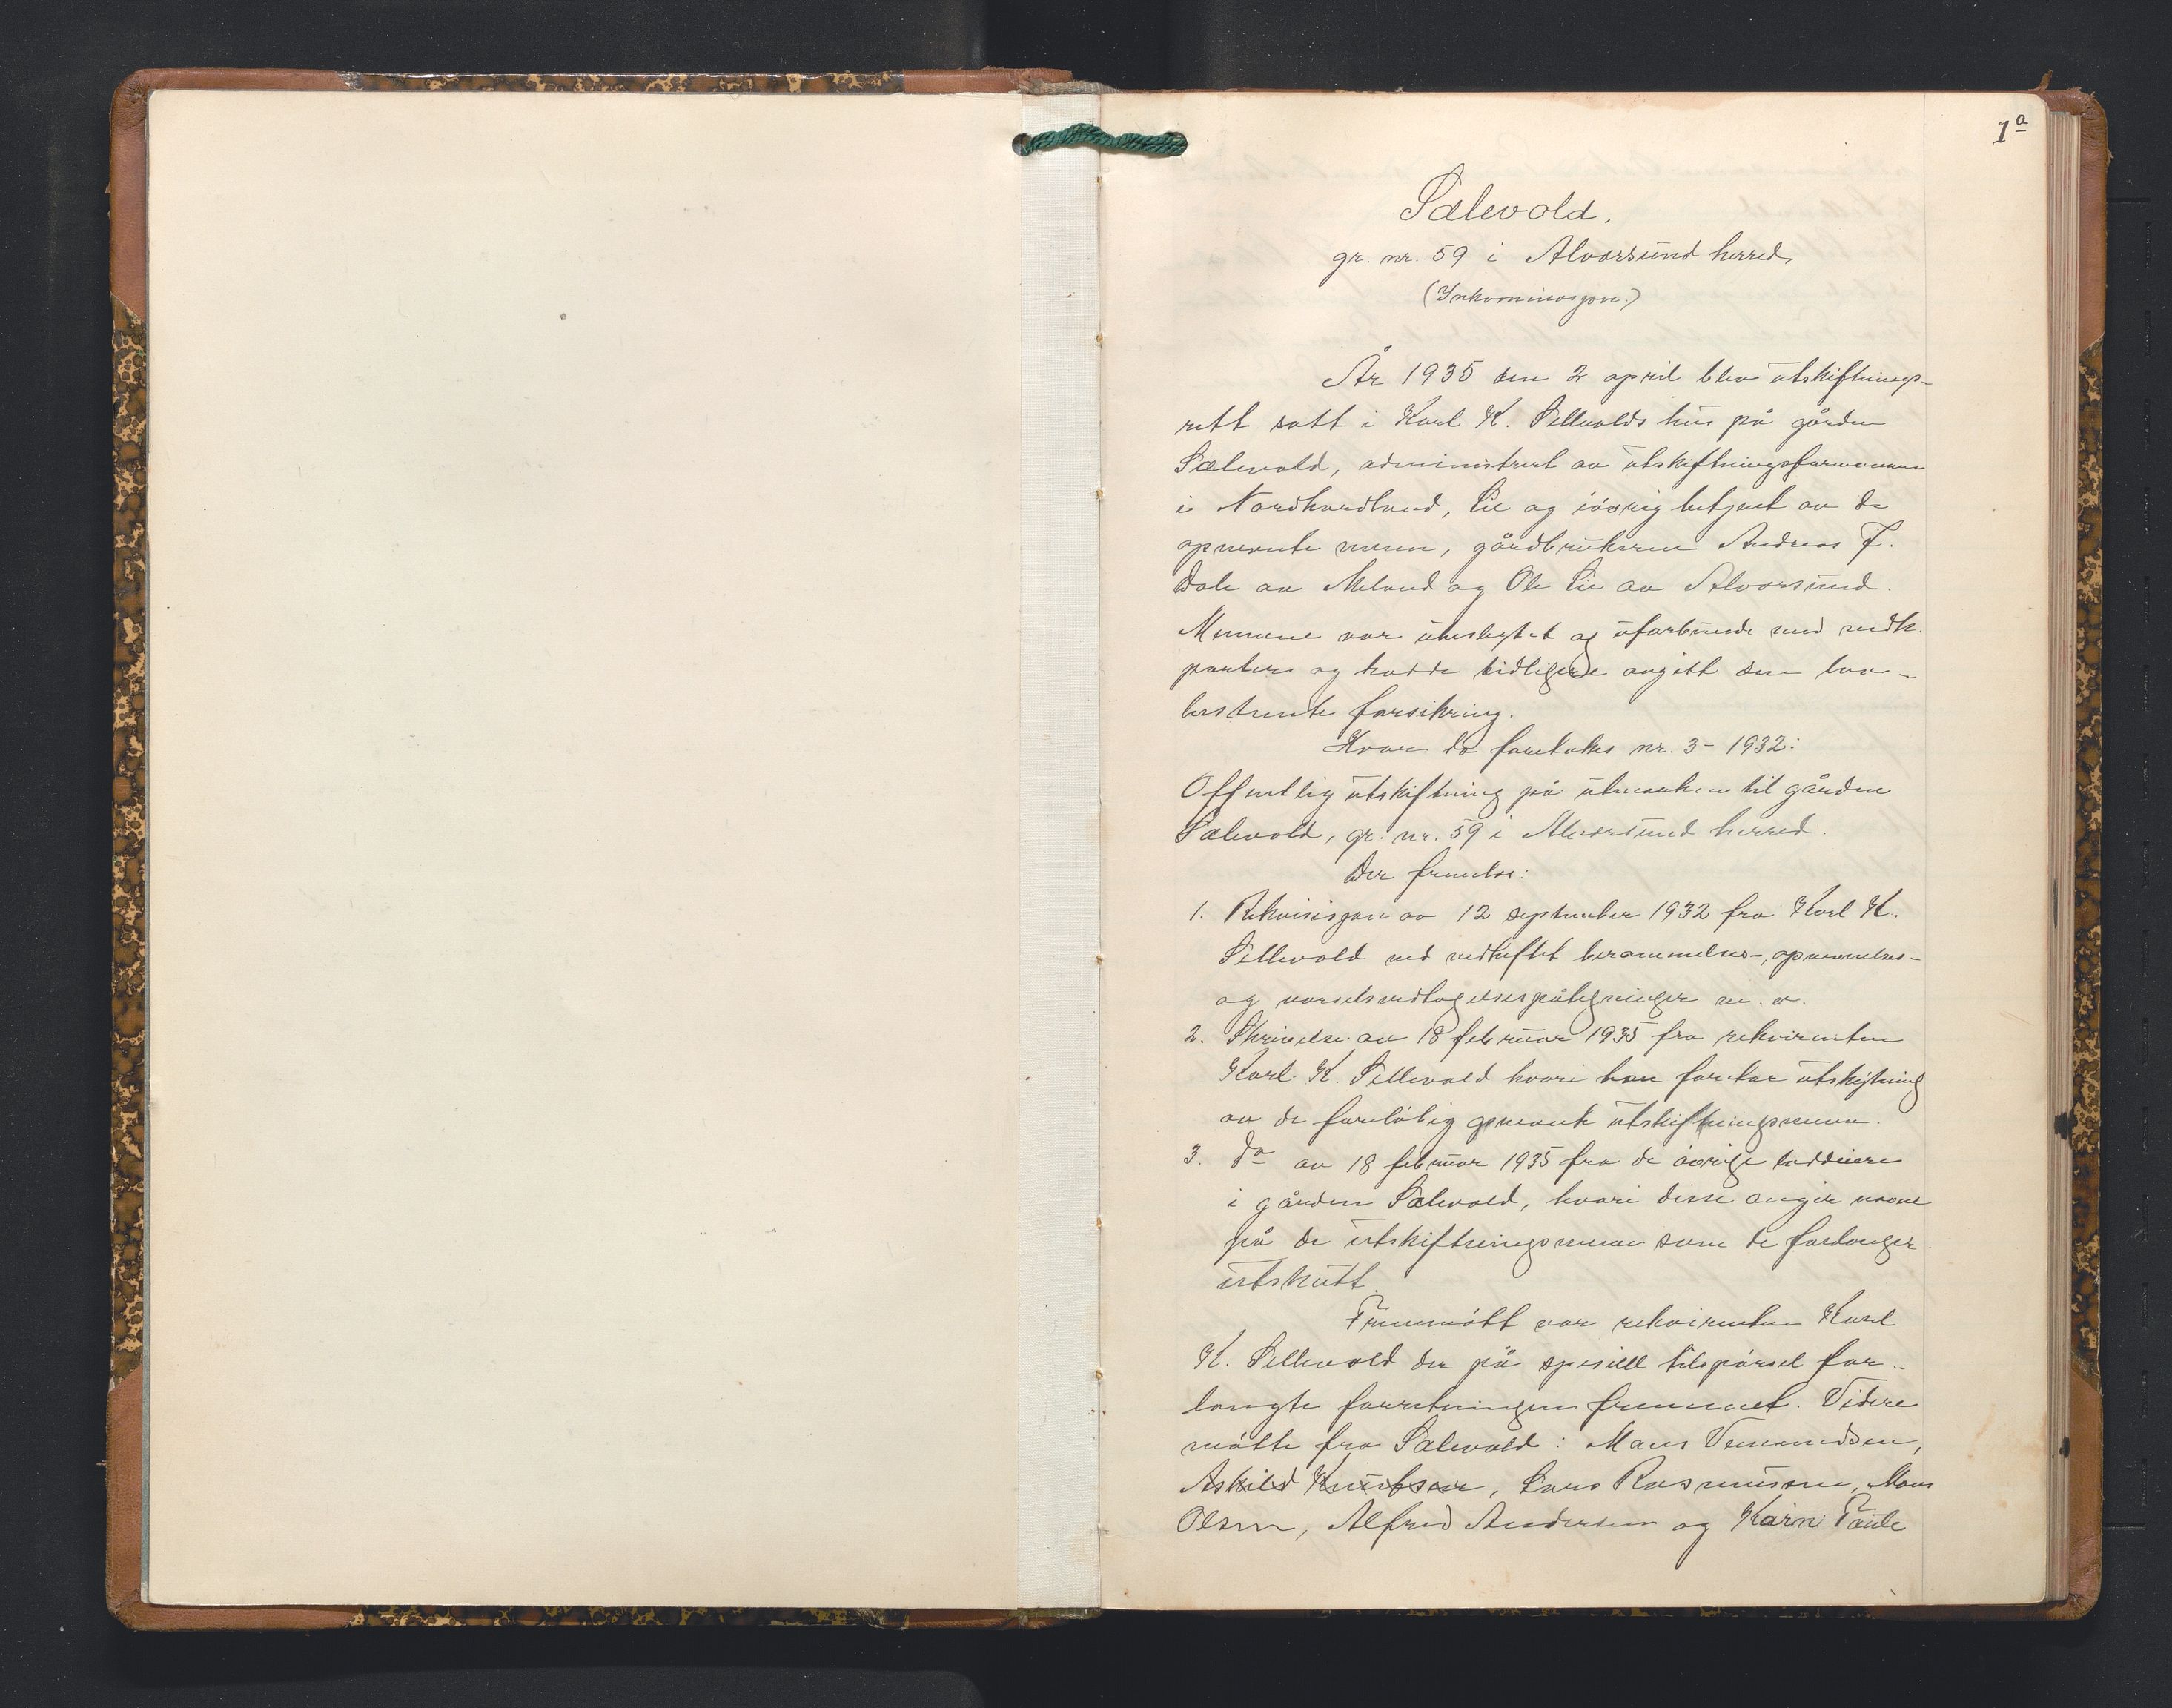 1a
Sælevold.
gr. nr. 59 i Alversund herred
(Inkaminasjon.)
År 1935 den 2 april blev utskiftnings-
rett satt i Karl K. Sellevolds hus på gården
Sælevold, administrert av utskiftningsformannen
i Nordhordland, Lie og iøvrig betjent av de
opnevnte menn, gårdbrukerne Andreas J.
Dale av Meland og Ole Lie av Alversund.
Mennene var ubeslegtet og uforbundne med vedk.
parter og hadde tidligere avgitt den lov-
bestemte forsikring.
Hvor da foretokes nr. 3 - 1932:
Offentlig utskiftning på utmarken til gården
Sælevold, gr. nr. 59 i Alversund herred.
Der fremlas:
1. Rekvisisjon av 12 september 1932 fra Karl K.
Sellevold med vedheftet berammelses-, opnevnelses-
og varselsvedtagelsespåtegninger m. v.
2. Skrivelse av 18 februar 1935 fra rekvirenten
Karl K. Sellevold hvori han foretar utskytning
av de foreløbig opnevnte utskiftningsmenn.
3. Do av 18 februar 1935 fra de øvrige loddeiere
i gården Sælevold, hvori disse angir navne
på de utskiftningsmenn som de forlanger
utskutt.
Fremmøtt var rekvirenten Karl
K. Sellevold der på spesiell tilspørsel for-
langte forretningen fremmet. Videre
møtte fra Sælevold: Mons Vemundsen,
Askild Knutsen, Lars Rasmussen, Mons
Olsen, Alfred Andersen og Karn Taule